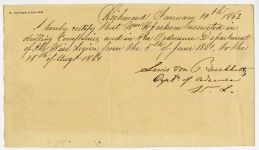 Richmond January 10th 1862
I hereby certify that Wm H Jackson assisted in
drilling Companies, and in the Ordnance Department
of the Wise Legion from the 5th of June 1861 to the
15th of Augt 1861
Lewis von Buckholtz
Capt of Ordnance
W. L.